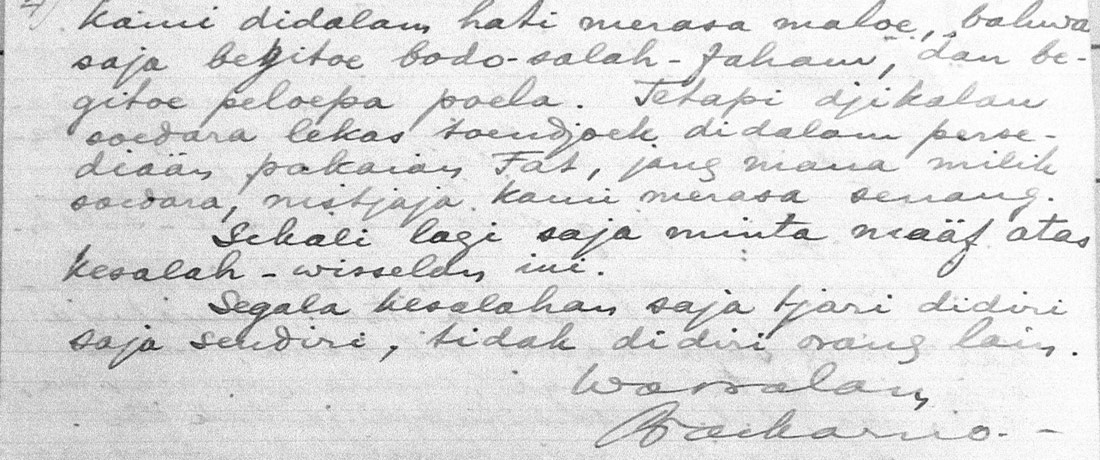 kami didalam hati merasa maloe, bahwa
saja begitoe bodo-salah-faham, dan be-
gitoe peloepa poela. Tetapi djikalau
soedara lekas toendjoek didalam perse-
diaän pakaian Fat, jang mana milik
soedara, nistjaja kami merasa senang.
Sekali lagi saja minta määf atas
kesalah-wisselan ini.
Segala kesalahan saja tjari didiri
saja sendiri, tidak didiri orang lain.
Wassalam,
Soekarno.-